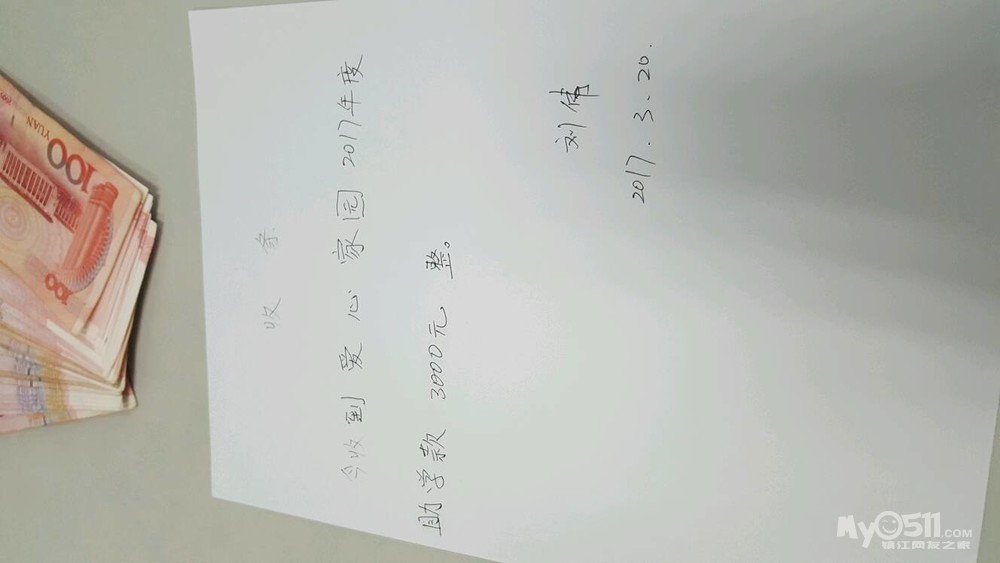 收条
今收到爱心家园2017年度
助学款3000元整。
刘伟
2017.3.20.
100
YUAN
100
My0511.COM
镇江网友之家